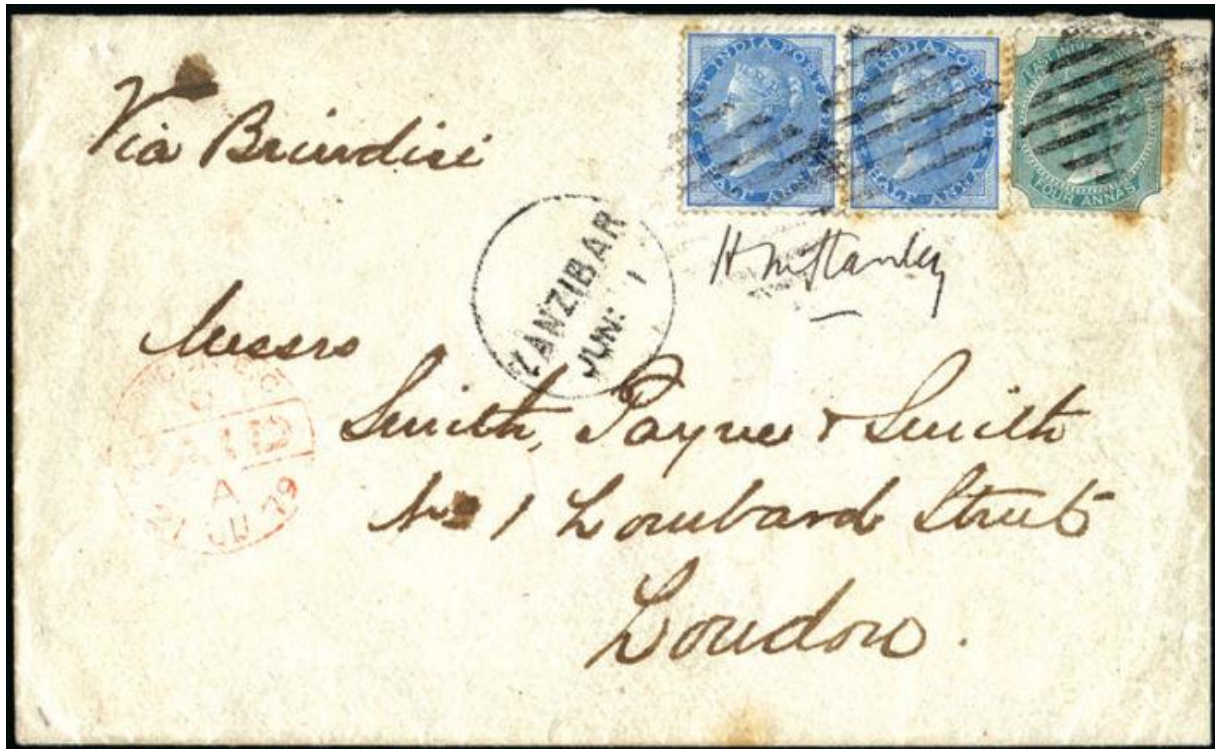 Via Brindisi
EAST INDIA POSTAGE
HALF ANNA
EAST INDIA POSTAGE
HALF ANNA
EAST INDIA
FOUR ANNAS
H M Stanley
ZANZIBAR
JUN: 1
Messrs
Smith, Payne & Smith
No 1 Lombard Street
London.
PAID
A
21 JU 79